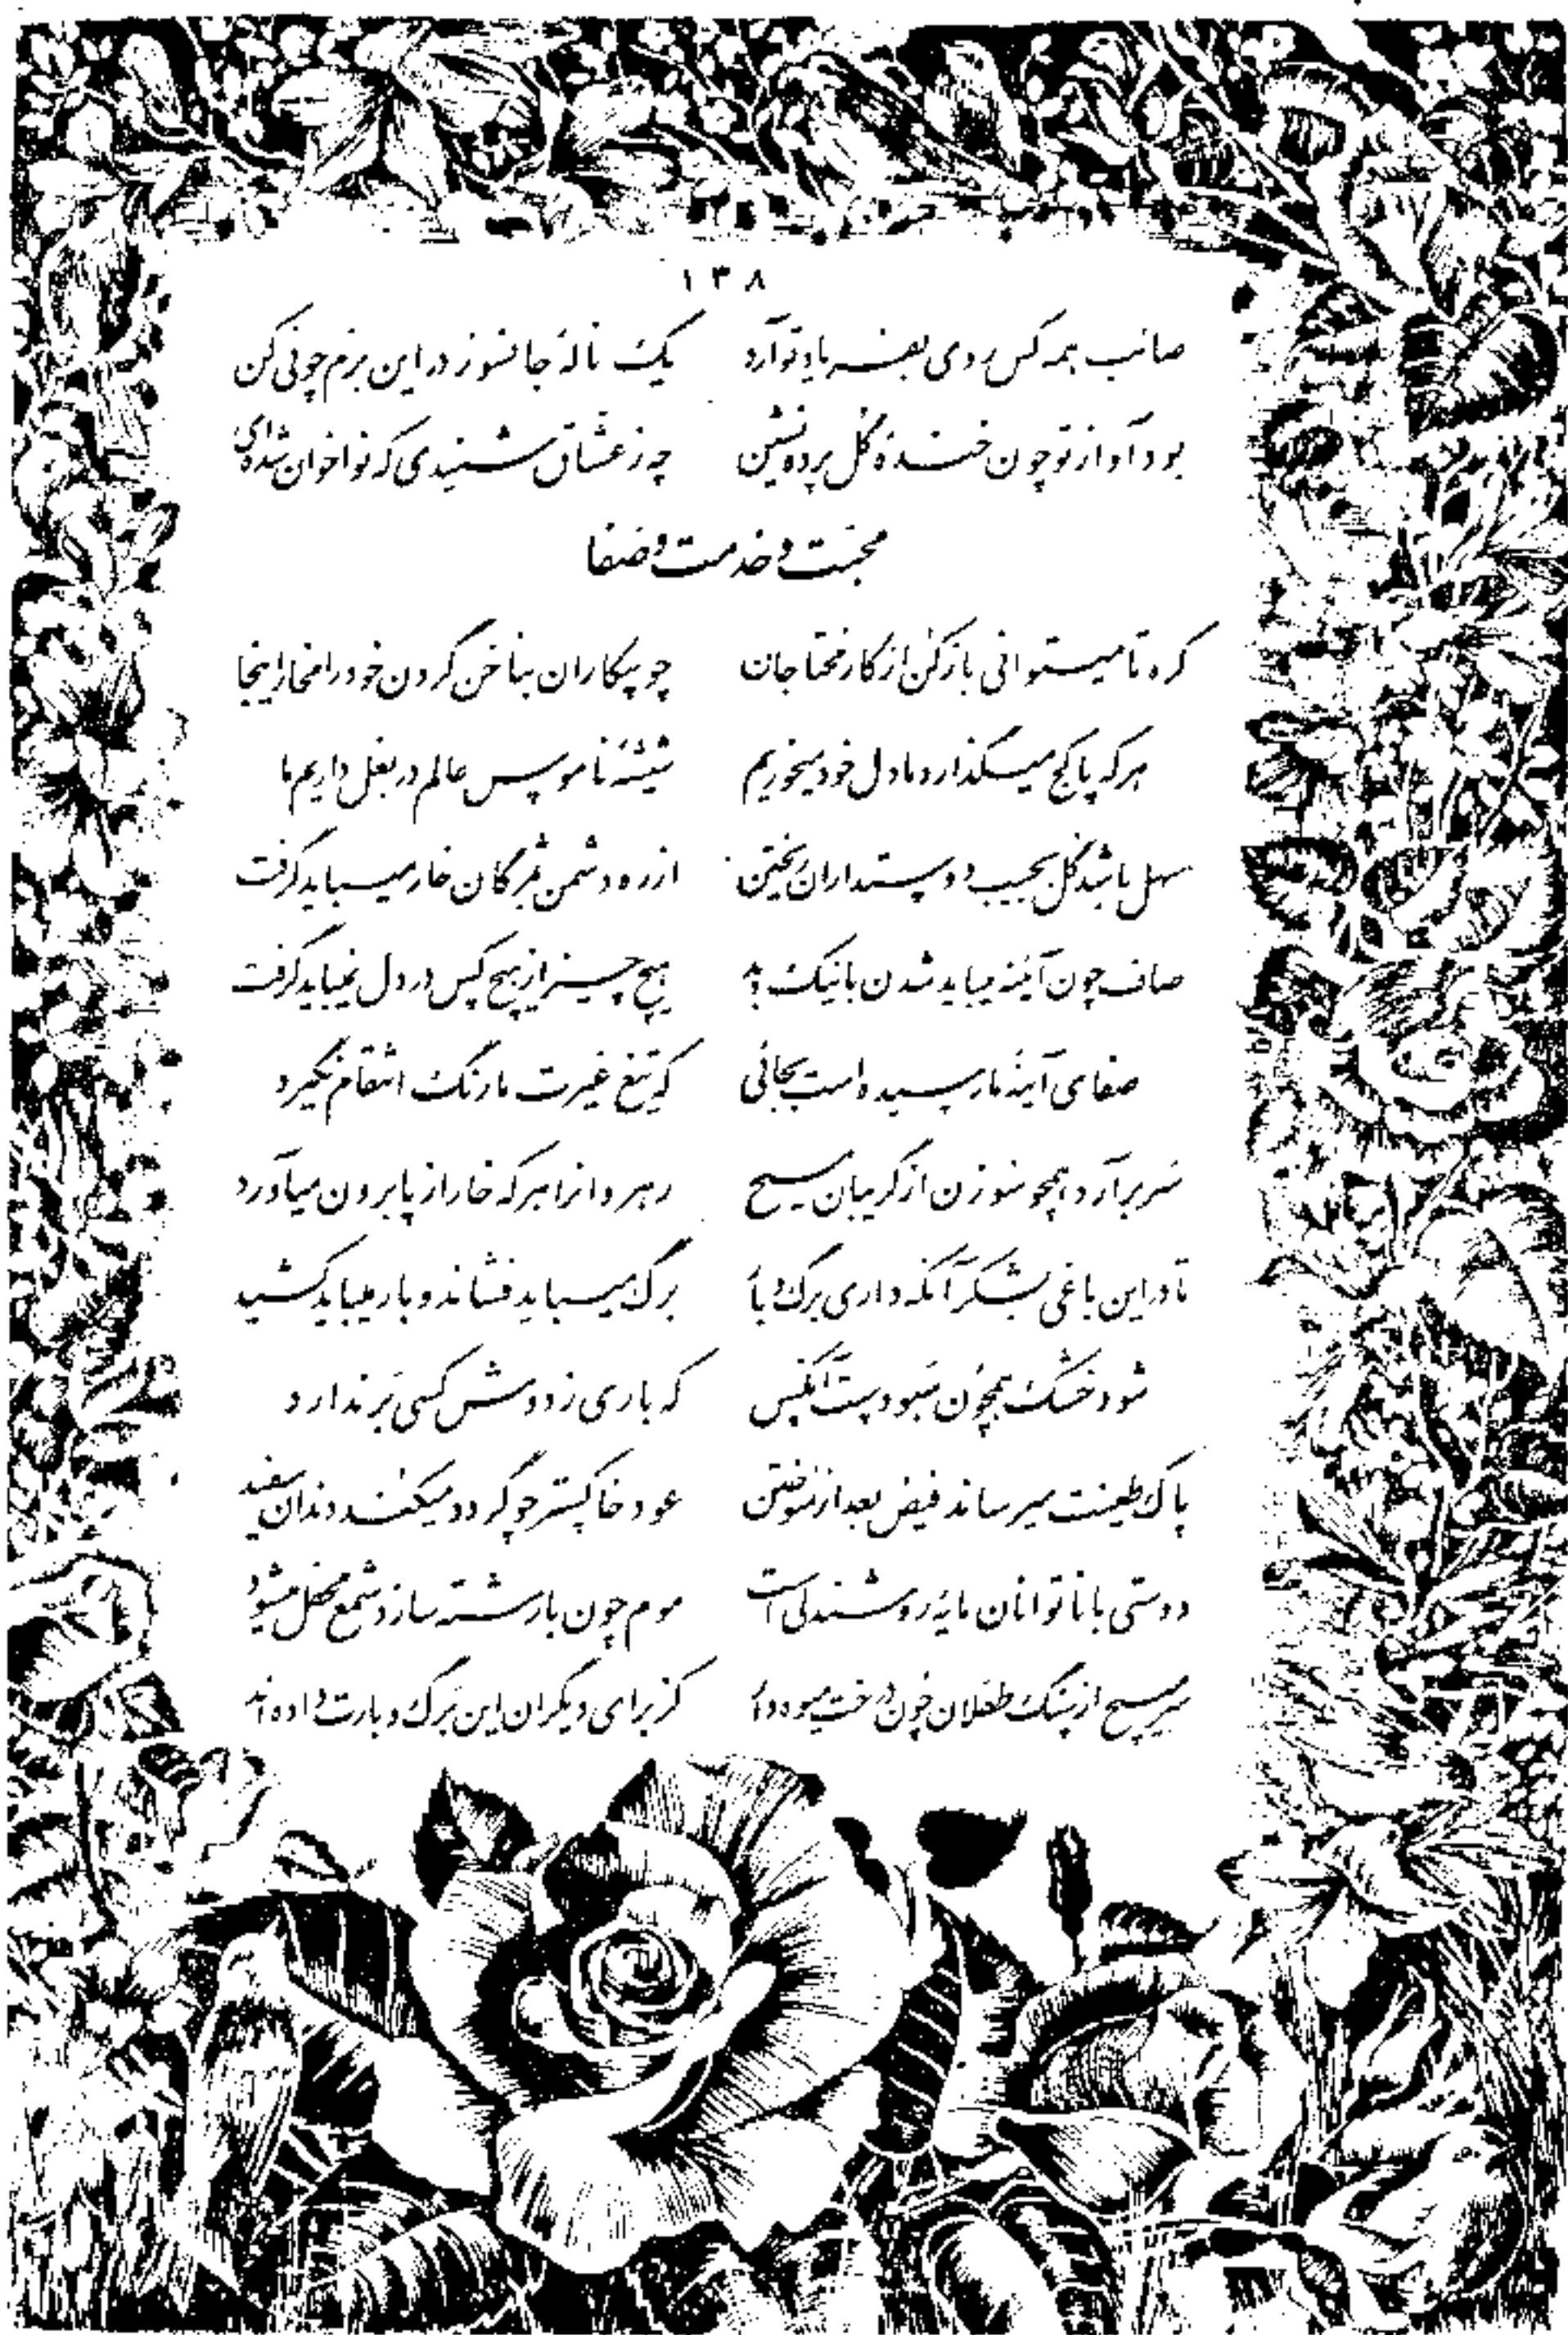 ۱۳۸
صائب همه کس روی بفریاد تو آرد یک نالهٔ جانسوز در این بزم چو نی کن
بود آواز تو چون خندهٔ گل پرده نشین چه ز عشاق شنیدی که نواخوان شده‌ای
محبت و خدمت و صفا
گره تا میتوانی باز کن از کار محتاجان چو بیکاران بناخن گردن خود را مخار اینجا
هر که پا کج میگذارد ما دل خود میخوریم شیشهٔ ناموس عالم در بغل داریم ما
سهل باشد گل بجیب دوستداران ریختن از ره دشمن بمژگان خار میباید گرفت
صاف چون آئینه میباید شدن با نیک و بد هیچ چیز از هیچ کس در دل نمیباید گرفت
صفای آینهٔ ما رسیده است بجائی که تیغ غیرت ما رنگ انتقام نگیرد
سر برآرد همچو سوزن از گریبان مسیح رهروانرا هر که خار از پا برون میآورد
تا در این باغی بشکر آنکه داری برگ و بار برگ میباید فشاند و بار میباید کشید
شود خشک همچون سبو دست آنکس که باری ز دوش کسی بر ندارد
پاک طینت میرساند فیض بعد از سوختن عود خاکستر چو گردد میکند دندان سفید
دوستی با ناتوانان مایهٔ روشندلی است موم چون با رشته سازد شمع محفل میشود
سر مپیچ از سنگ طفلان چون درخت میوه دار کز برای دیگران این برگ و بارت داده‌اند